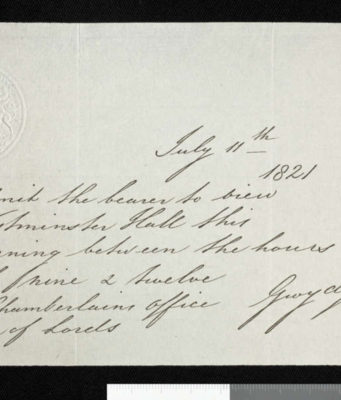 July 11th
1821
mit the bearer to view
tminster Hall this
ning between the hours
of nine & twelve
Chamberlains office
Gwyd
of Lords